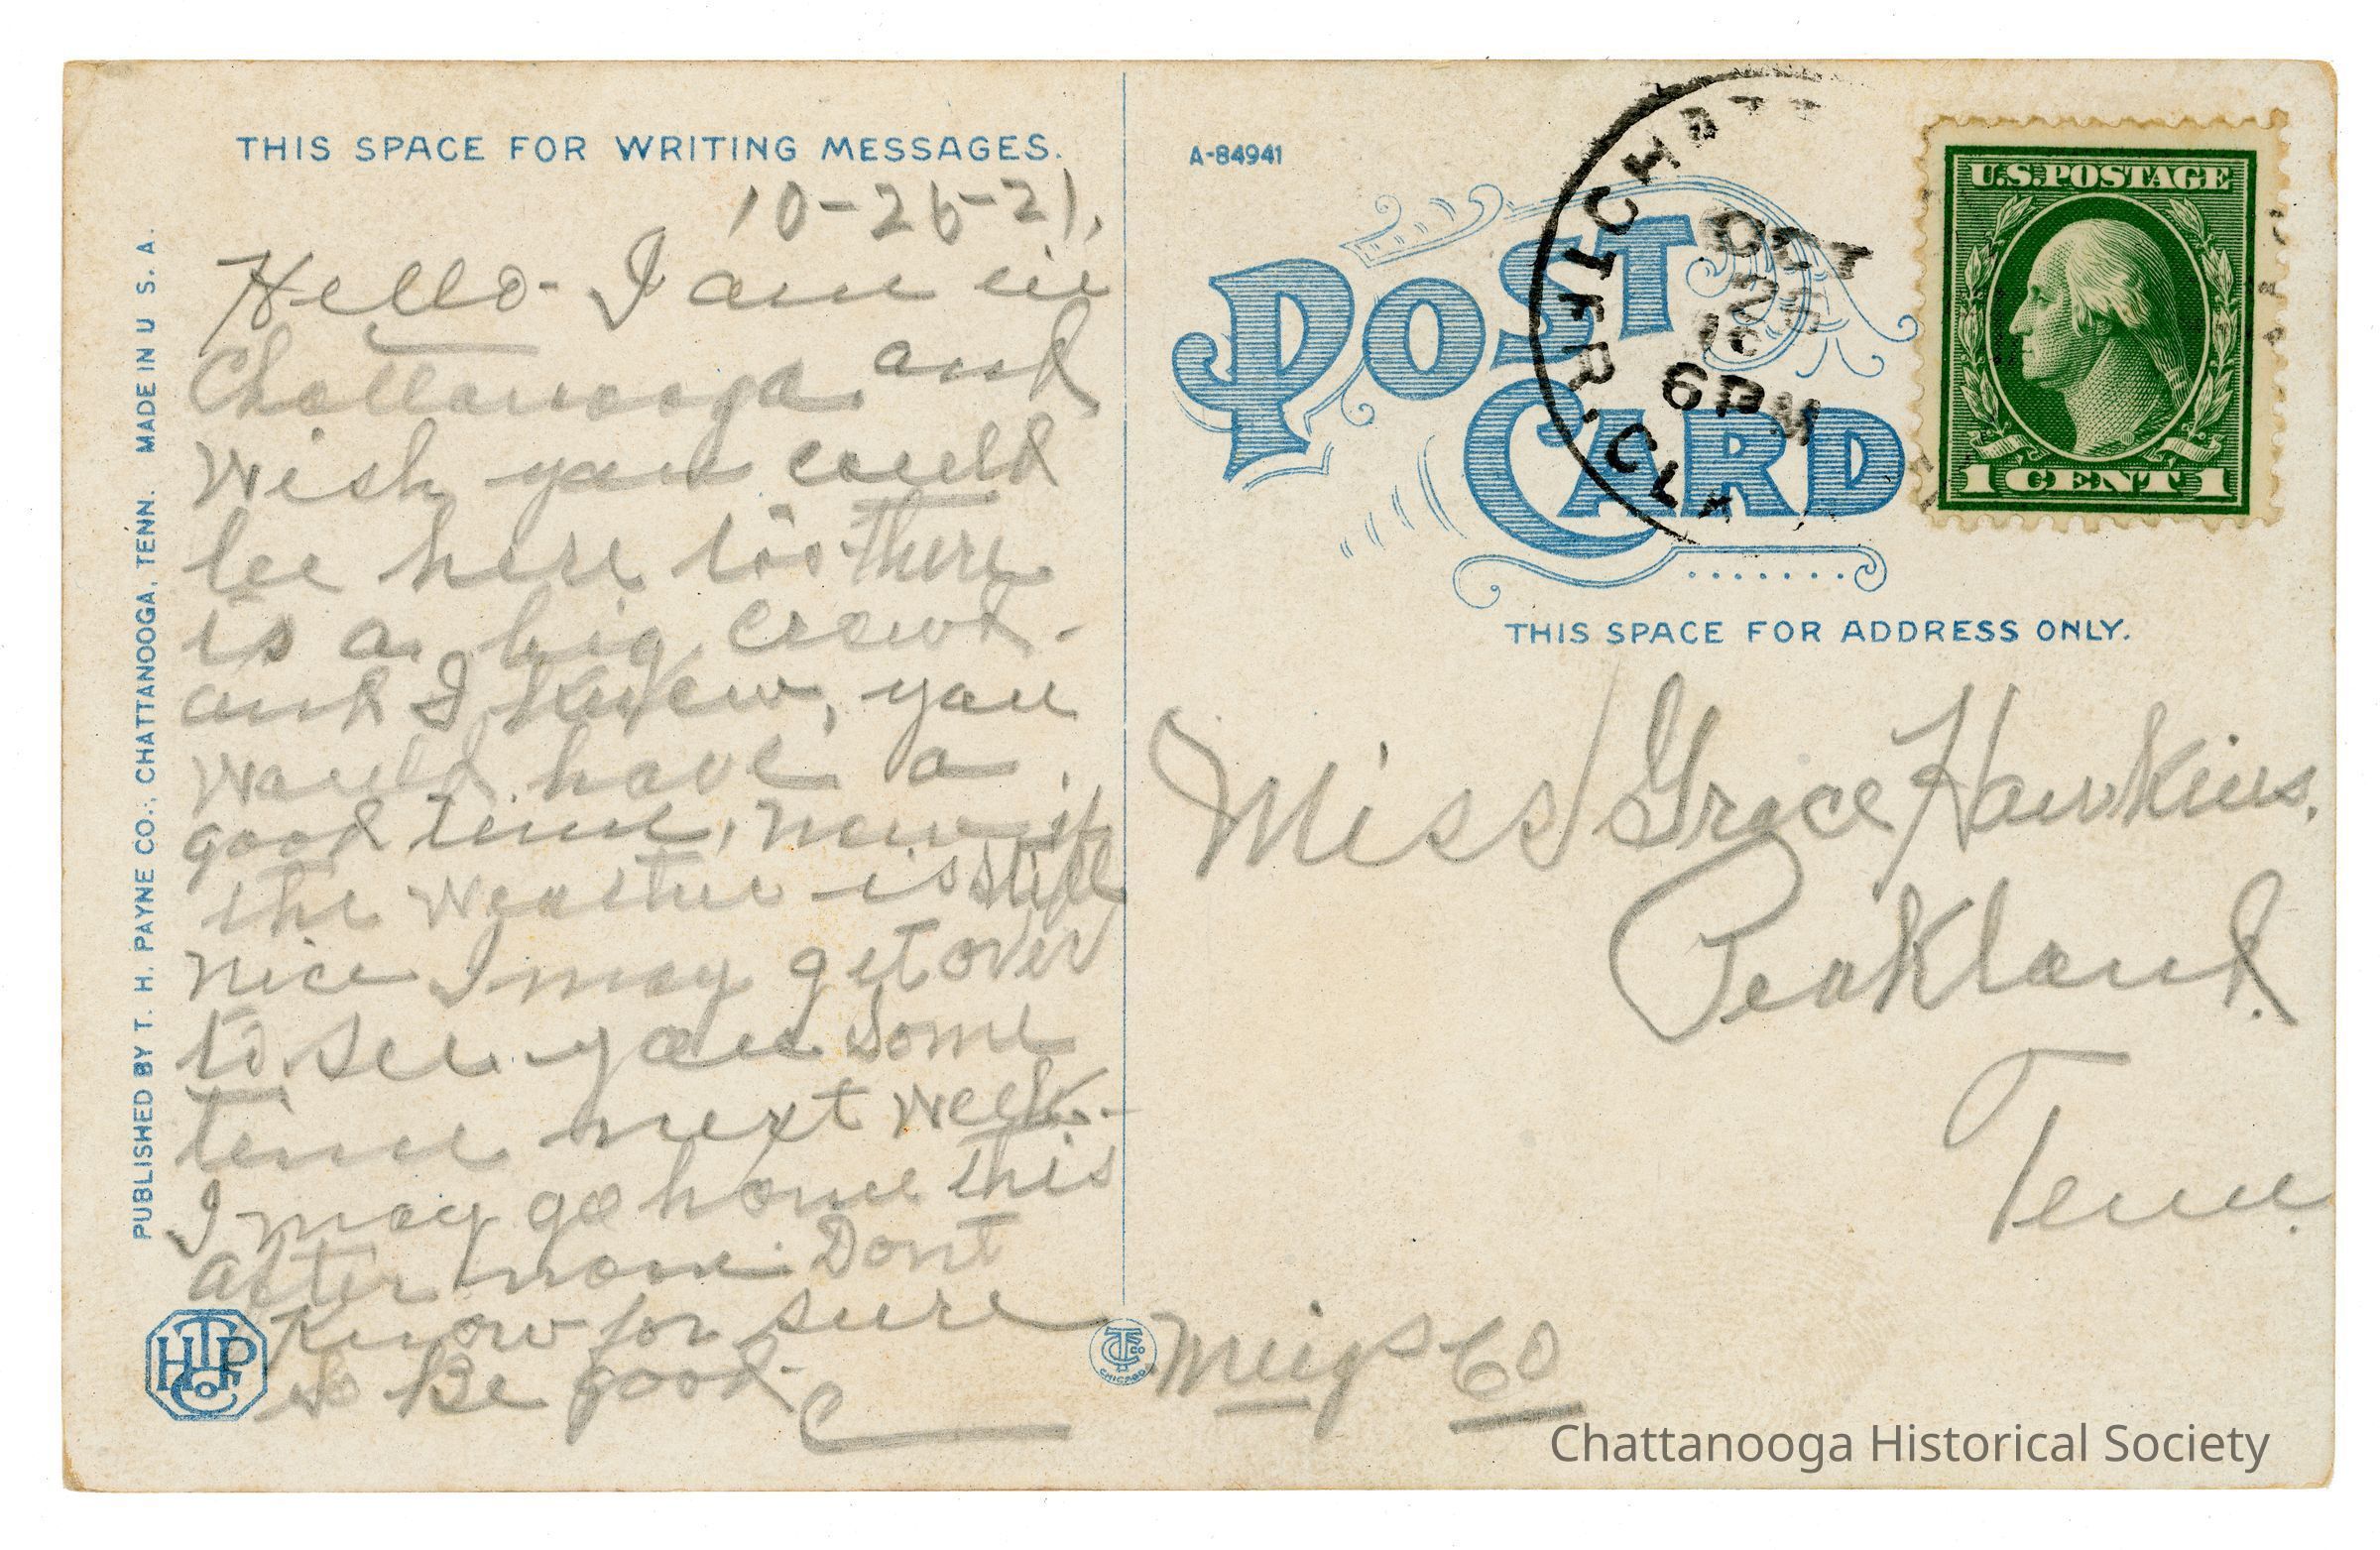 THIS SPACE FOR WRITING MESSAGES.
10-26-21.
Hello- I am in
Chattanooga. and
Wish you could
bee here too There
is a big crowd-
and I know, you
Would have a
good time, now if
the weather is still
nice I may get over
to see you Some
time next week-
I may go home this
after noon. Dont
Know for sure
so Be good-
C
PUBLISHED BY T. H. PAYNE CO., CHATTANOOGA, TENN. MADE IN U. S. A.
A-84941
POST CARD
6 PM
U.S. POSTAGE
1 CENT 1
THIS SPACE FOR ADDRESS ONLY.
Miss Grace Hawkins.
Peakland.
Tenn.
Meigs Co
CHICAGO
Chattanooga Historical Society